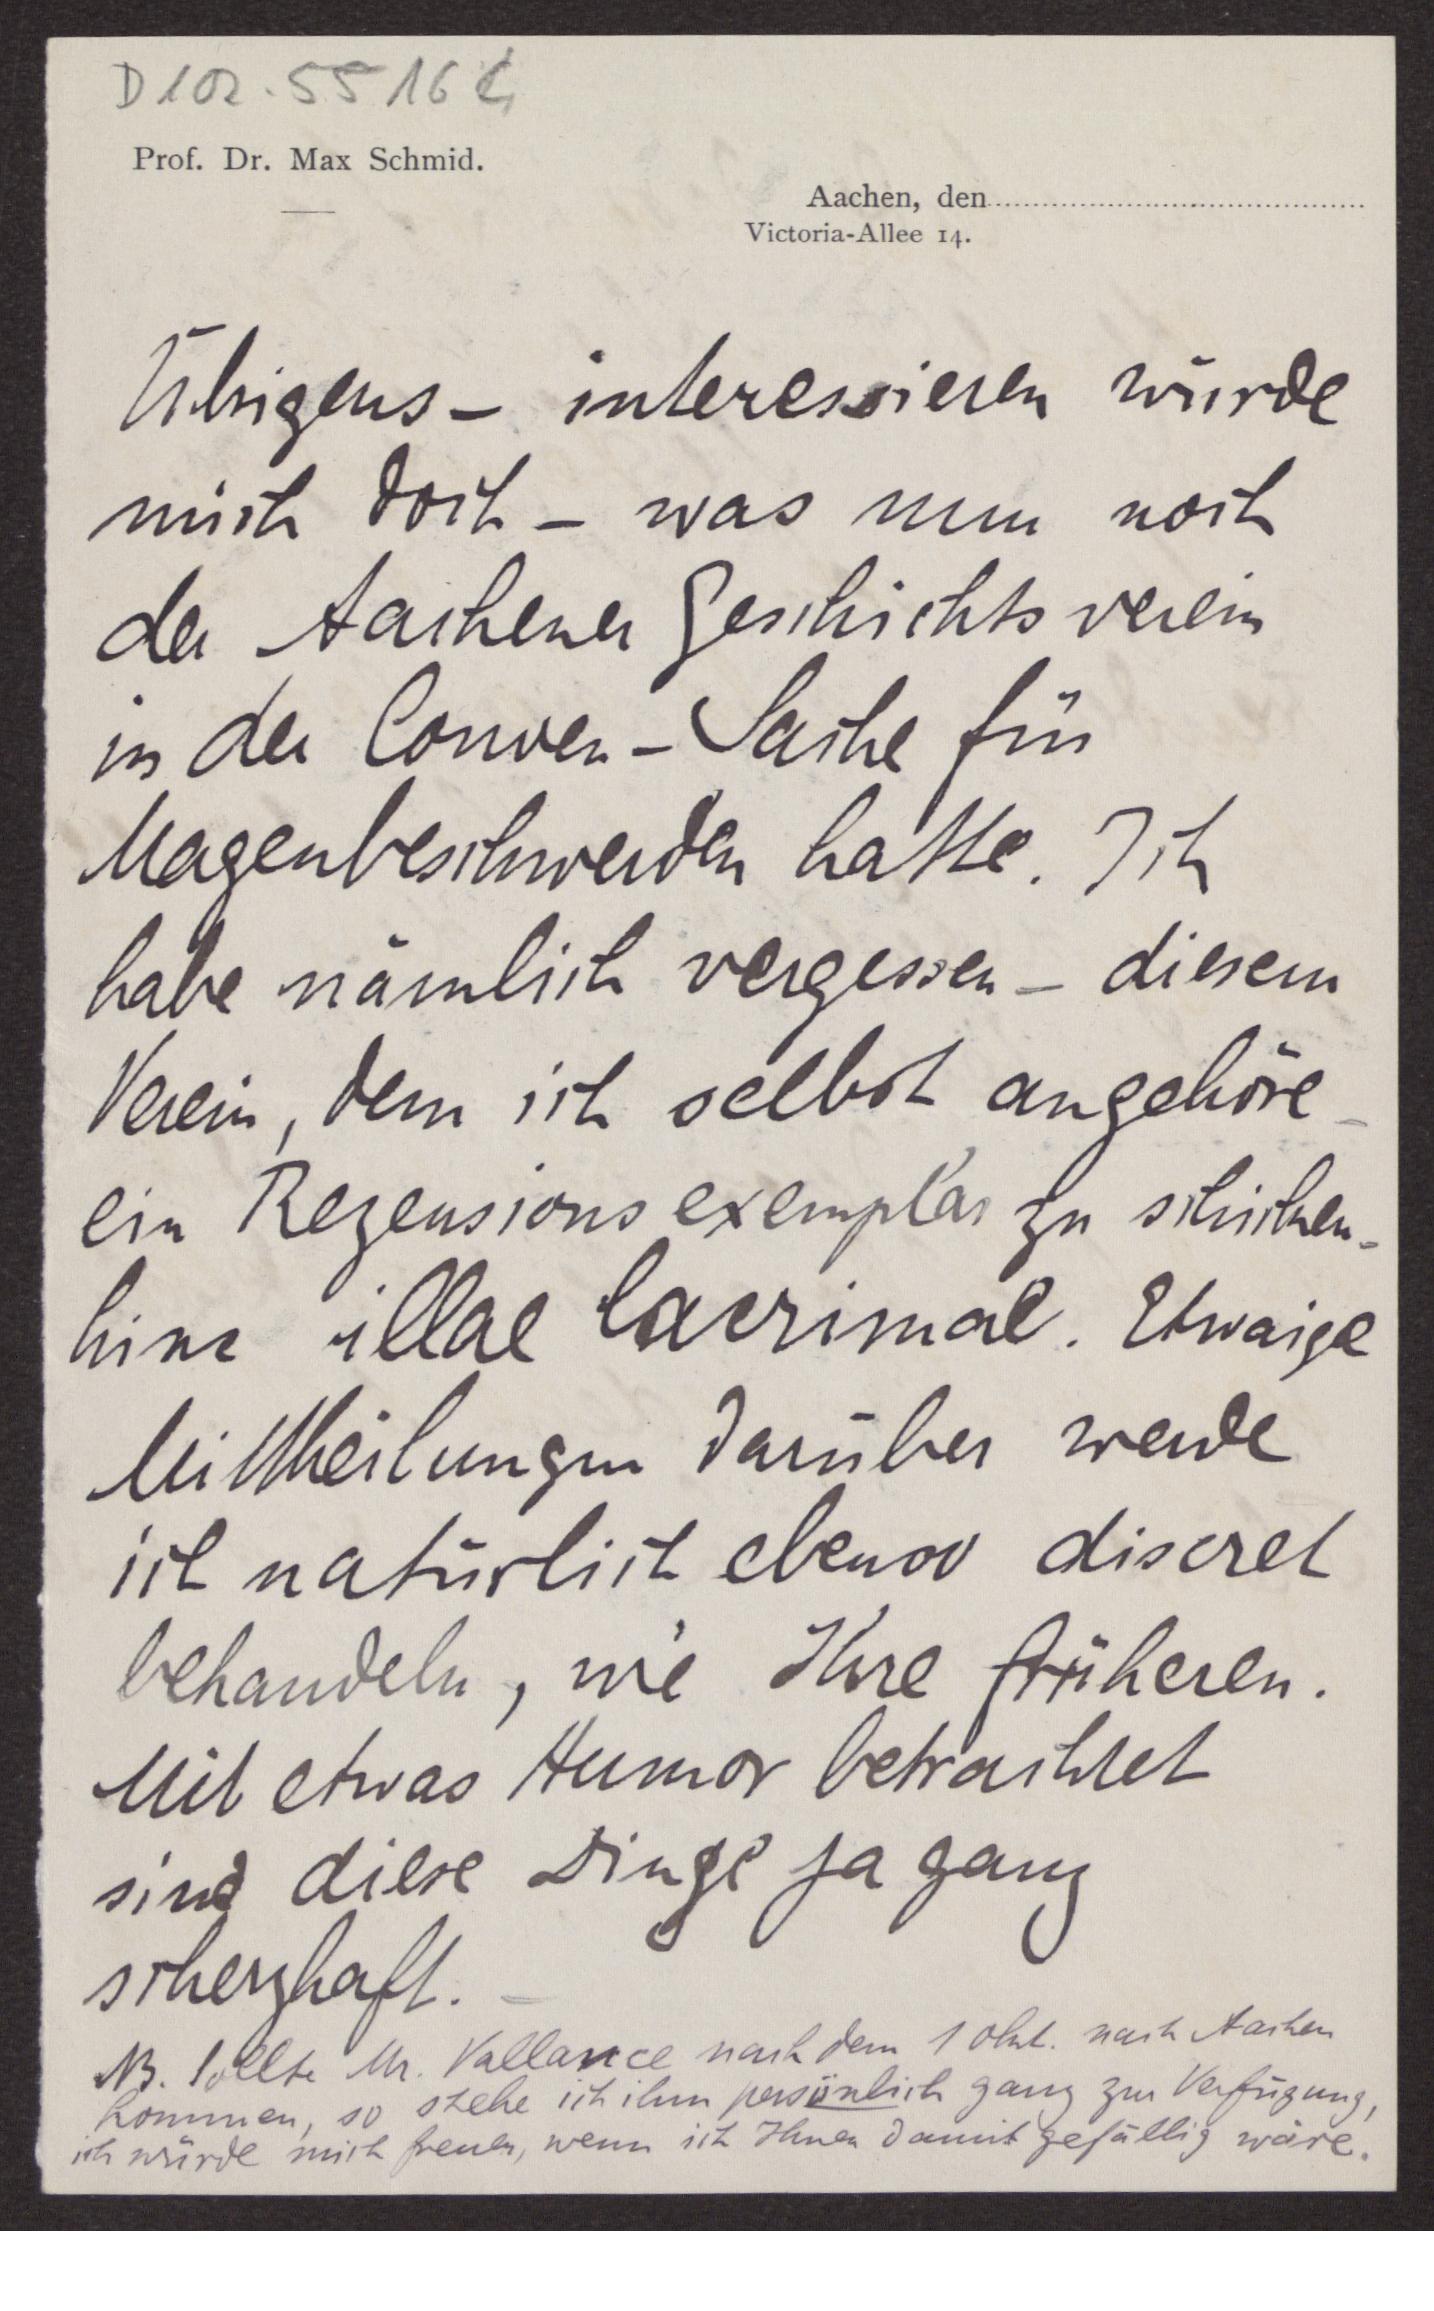 D 102. 5516
Prof. Dr. Max Schmid.
Aachen, den
Victoria-Allee 14.
Übrigens – interessieren würde
mich doch – was nun noch
der Aachener Geschichtsverein
in der Conven-Sache für
Magenbeschwerden hatte. Ich
habe nämlich vergessen – diesem
Verein, dem ich selbst angehöre –
ein Rezensionsexemplar zu schicken –
hinc illae lacrimae. Etwaige
Mittheilungen darüber werde
ich natürlich ebenso discret
behandeln, wie Ihre früheren.
Mit etwas Humor betrachtet
sind diese Dinge ja ganz
scherzhaft. –
NB. Sollte Mr. Vallance nach dem 1 Okt. nach Aachen
kommen, so stehe ich ihm persönlich ganz zur Verfügung,
ich würde mich freuen, wenn ich Ihnen damit gefällig wäre.